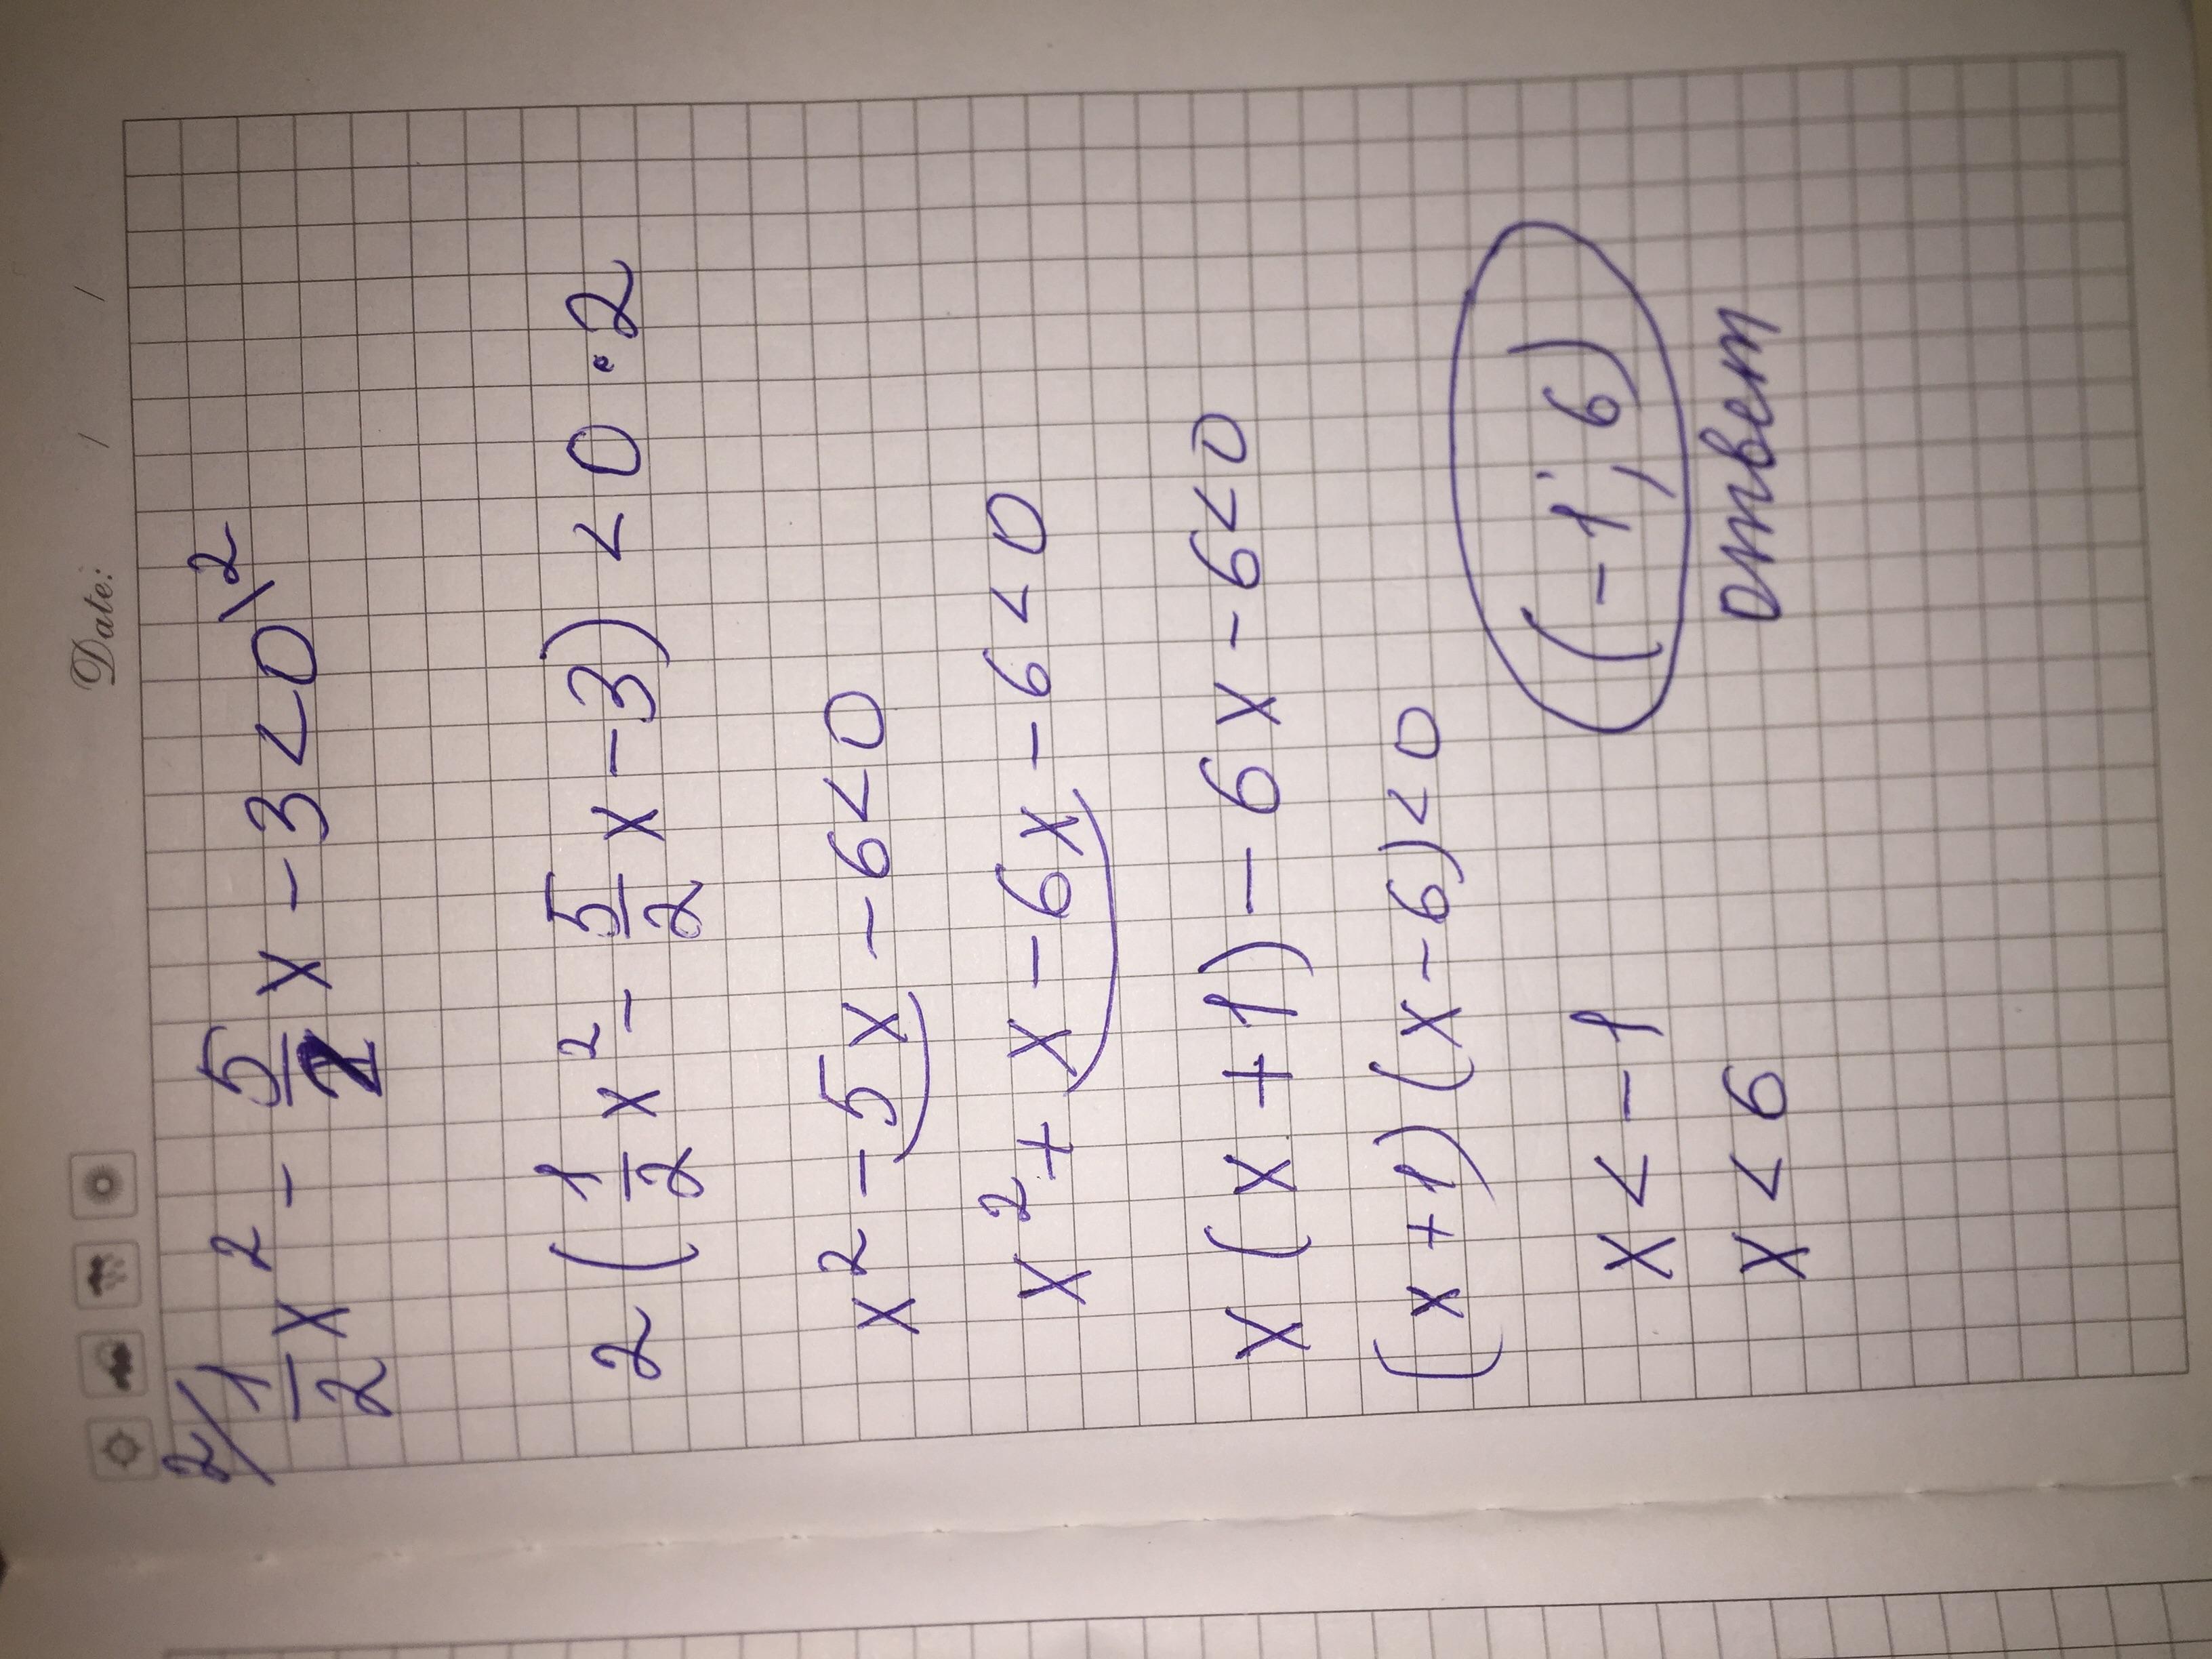 Date: / /
2/ 1/2 x² - 5/2 x - 3 < 0 \2
2 (1/2 x² - 5/2 x - 3) < 0 · 2
x² - 5x - 6 < 0
x² + x - 6x - 6 < 0
x (x + 1) - 6x - 6 < 0
(x + 1) (x - 6) < 0
x < -1
(-1; 6)
x < 6
ответ